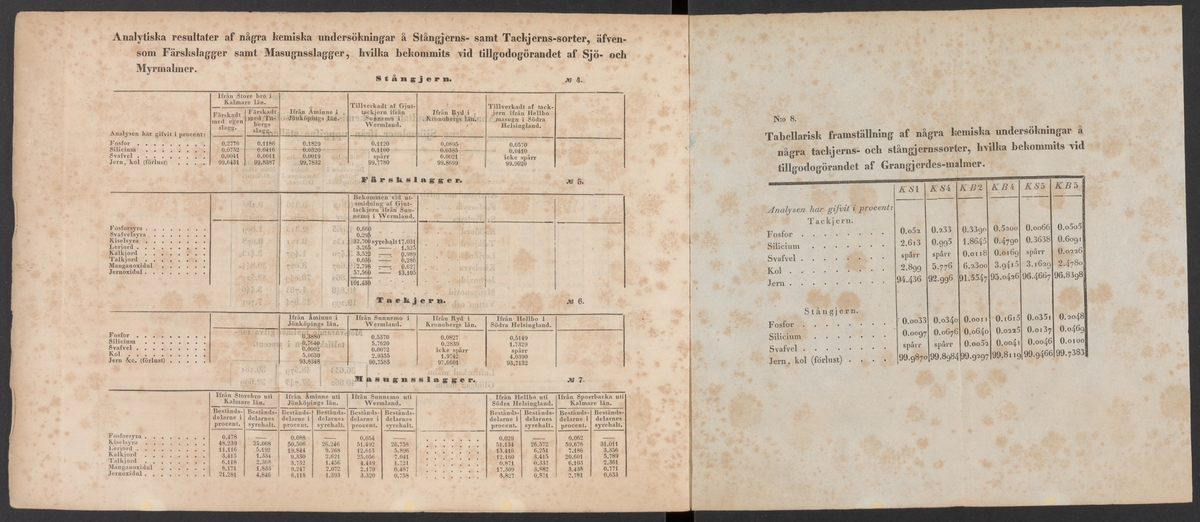 Analytiska resultater af några kemiska undersökningar å Stångjerns- samt Tackjerns-sorter, äfven-
som Färskslagger samt Masugnsslagger, hvilka bekommits vid tillgodogörandet af Sjö- och
Myrmalmer.
Stångjern. № 4.
Ifrån Store bro i Kalmare län. Ifrån Åminne i Jönköpings län. Tillverkadt af Gjut-tackjern ifrån Sunnemo i Wermland. Ifrån Ryd i Kronobergs län. Tillverkadt af tack-jern ifrån Hellbo masugn i Södra Helsingland.
Färskadt med egen slagg. Färskadt med Ta-bergs slagg.
Analysen har gifvit i procent:
Fosfor 0,2776 0,1186 0,1829 0,1120 0,0895 0,0570
Silicium 0,0752 0,0416 0,0320 0,1100 0,0385 0,0410
Svafvel 0,0041 0,0011 0,0019 spårr 0,0021 icke spårr
Jern, kol (förlust) 99,6431 99,8387 99,7832 99,7780 99,8699 99,9020
Färskslagger. № 5.
Bekommen vid ut-
smidning af Gjut-
tackjern ifrån Sun-
nemo i Wermland.
Fosforsyra 0,660
Svafvelsyra 0,295
Kiselsyra 32,700 syrehalt 17,031
Lerjord 3,265 1,525
Kalkjord 3,522 0,989
Talkjord 0,656 0,286
Manganoxidul 2,798 0,627
Jernoxidul 57,560 13,105
101,450
Tackjern. № 6.
Ifrån Åminne i Jönköpings län. Ifrån Sunnemo i Wermland. Ifrån Ryd i Kronobergs län. Ifrån Hellbo i Södra Helsingland.
Fosfor 0,3880 0,5370 0,0827 0,5149
Silicium 0,7640 5,7620 0,2830 1,7329
Svafvel 0,0002 0,0072 icke spårr spårr
Kol 5,0030 2,9355 1,9742 4,0390
Jern &c. (förlust) 93,8348 90,7583 97,6601 93,7132
Masugnsslagger. № 7.
Ifrån Storebro uti Kalmare län. Ifrån Åminne uti Jönköpings län. Ifrån Sunnemo uti Wermland. Ifrån Hellbo uti Södra Helsingland. Ifrån Sporsbacka uti Kalmare län.
Bestånds-delarne i procent. Bestånds-delarnes syrehalt. Bestånds-delarne i procent. Bestånds-delarnes syrehalt. Bestånds-delarne i procent. Bestånds-delarnes syrehalt. Bestånds-delarne i procent. Bestånds-delarnes syrehalt. Bestånds-delarne i procent. Bestånds-delarnes syrehalt.
Fosforsyra 0,478 0,088 0,054 0,029 0,062
Kiselsyra 48,239 25,068 50,506 26,246 51,492 26,758 51,134 26,572 59,676 31,011
Lerjord 11,116 5,192 19,844 9,268 12,613 5,896 13,416 6,251 7,186 3,356
Kalkjord 5,415 1,534 9,330 2,621 25,056 7,041 12,160 3,415 20,601 5,789
Talkjord 6,118 2,368 3,752 1,456 4,449 1,721 0,871 0,337 6,103 2,361
Manganoxidul 8,171 1,833 9,247 2,072 2,179 0,487 17,309 3,882 3,438 0,771
Jernoxidul 21,281 4,846 6,118 1,393 3,320 0,758 3,827 0,871 2,781 0,633
N:o 8.
Tabellarisk framställning af några kemiska undersökningar å
några tackjerns- och stångjernssorter, hvilka bekommits vid
tillgodogörandet af Grangjerdes-malmer.
K S 1 K S 4 K B 2 K B 4 K S 5 K B 5
Analysen har gifvit i procent:
Tackjern.
Fosfor 0.052 0.233 0.3390 0.5200 0.0066 0.0505
Silicium 2.613 0.995 1.8645 0.4790 0.3638 0.6091
Svafvel spårr spårr 0.0118 0.0169 spårr 0.0226
Kol 2.899 5.776 6.2300 3.9415 3.1629 2.4780
Jern 94.436 92.996 91.5547 95.0426 96.4667 96.8398
Stångjern.
Fosfor 0.0033 0.0340 0.0011 0.1615 0.0351 0.2048
Silicium 0.0097 0.0676 0.0640 0.0225 0.0137 0.0469
Svafvel spårr spårr 0.0052 0.0041 0.0046 0.0100
Jern, kol (förlust) 99.9870 99.8984 99.9297 99.8119 99.9466 99.7383